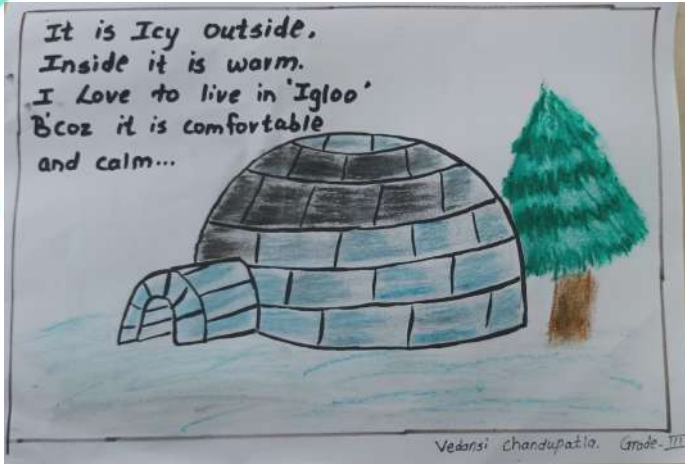 It is Icy outside.
Inside it is warm.
I Love to live in 'Igloo'
B'coz it is comfortable
and calm...
Vedansi Chandupatla. Grade-III